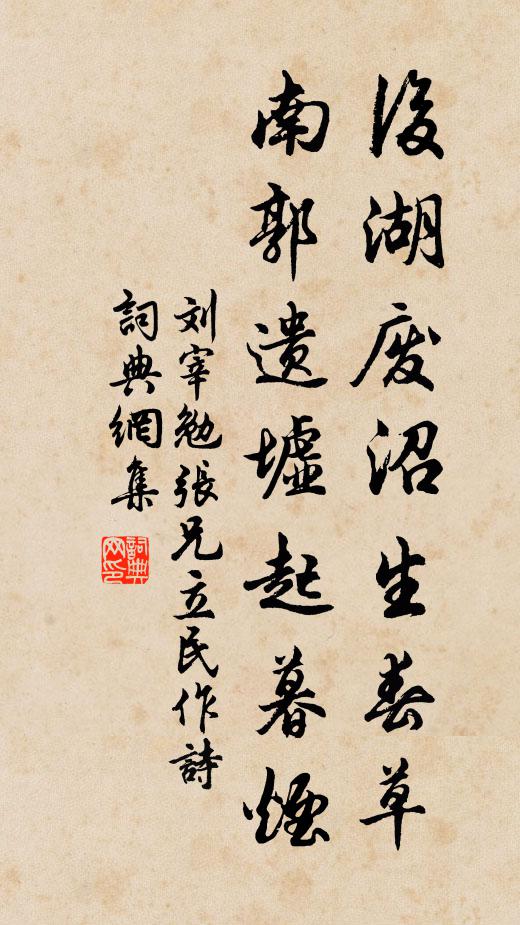 後湖废沼生春草
南郭遗墟起暮煙
刘宰勉張兄立民作詩
詞典網集
詞典网印